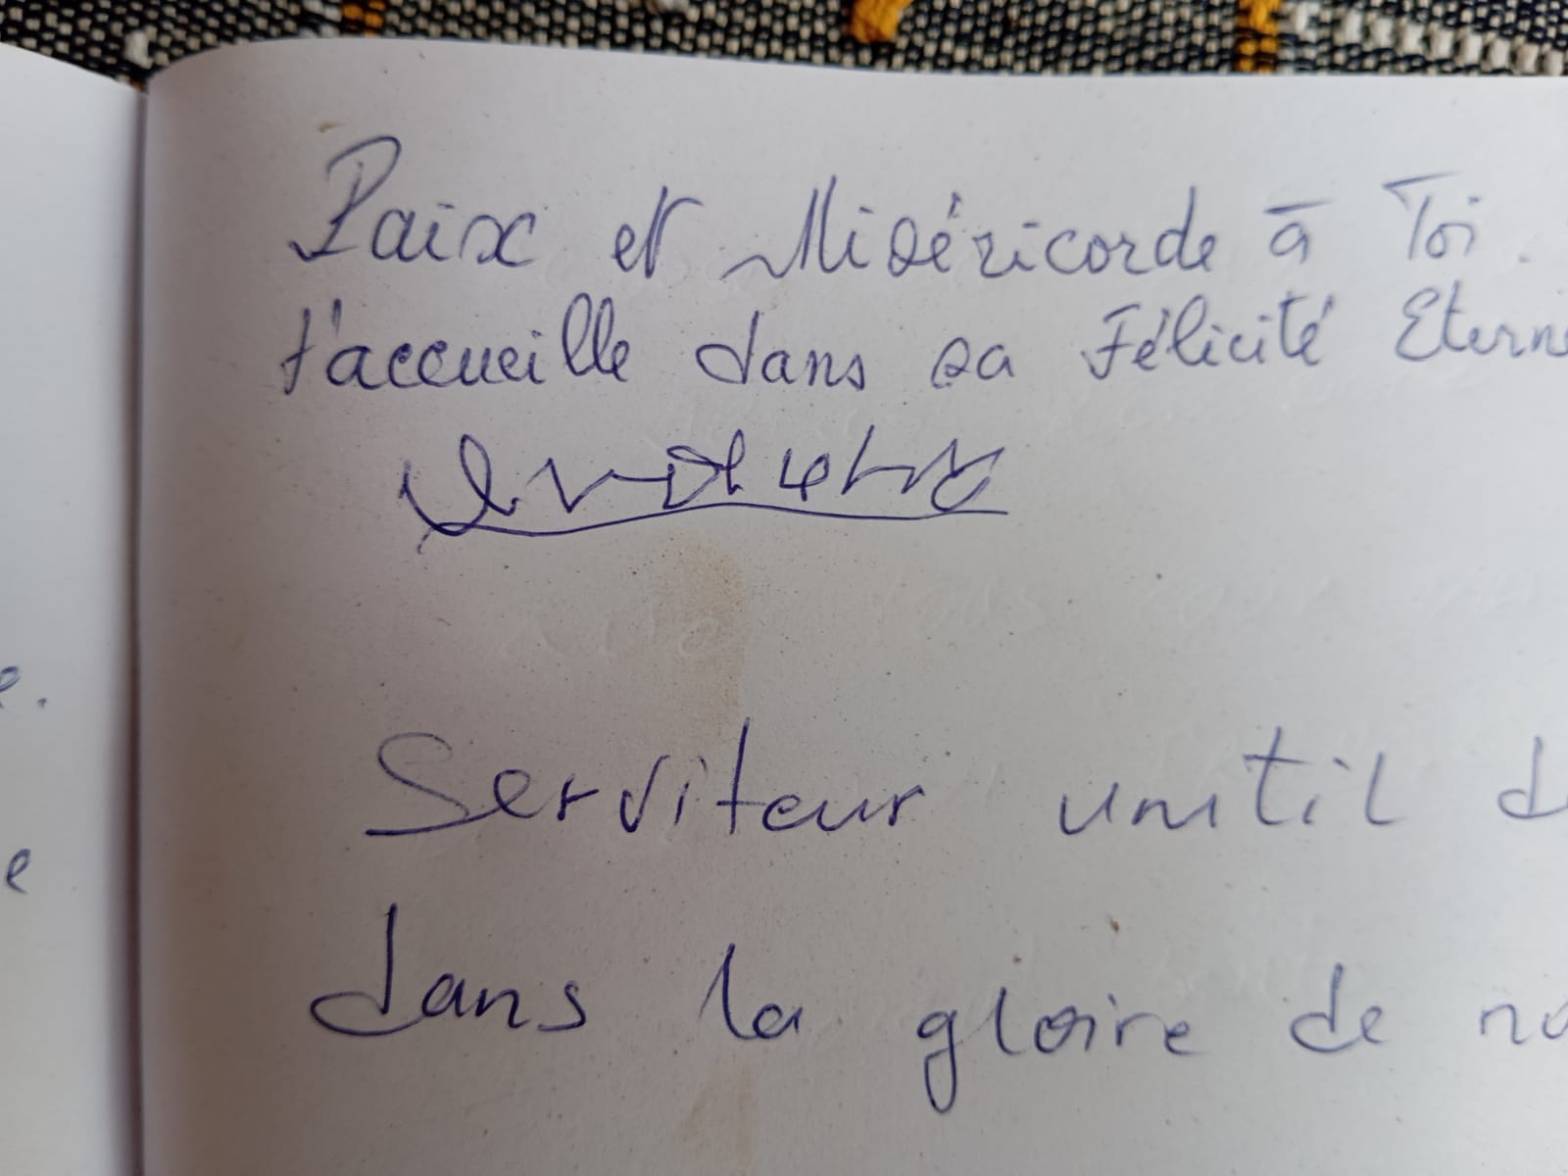 Paix et Miséricorde à Toi.
t'accueille dans sa Félicité Eterne
Serviteur unitil d
dans la gloire de no
e.
e